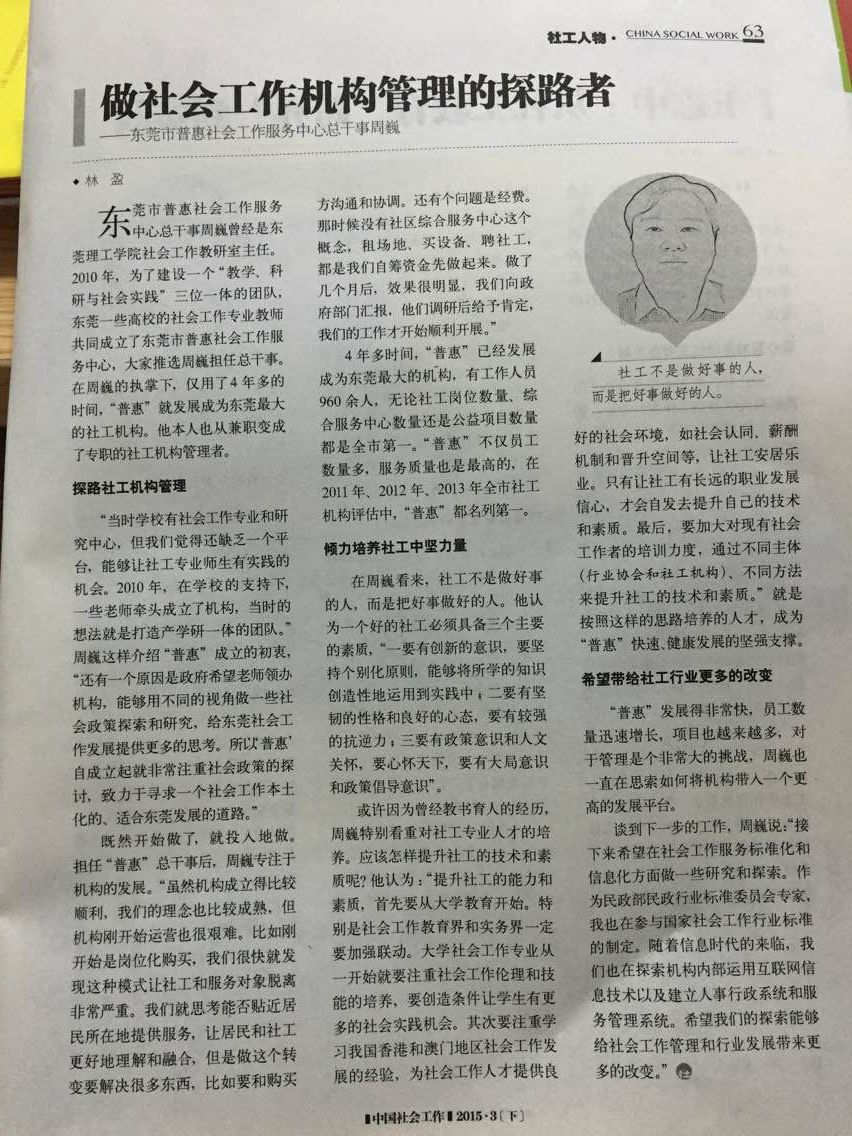 社工人物· CHINA SOCIAL WORK 63
做社会工作机构管理的探路者
——东莞市普惠社会工作服务中心总干事周巍
◆ 林 盈
东莞市普惠社会工作服务
中心总干事周巍曾经是东
莞理工学院社会工作教研室主任。
2010 年，为了建设一个“教学、科
研与社会实践”三位一体的团队，
东莞一些高校的社会工作专业教师
共同成立了东莞市普惠社会工作服
务中心，大家推选周巍担任总干事。
在周巍的执掌下，仅用了 4 年多的
时间，“普惠”就发展成为东莞最大
的社工机构。他本人也从兼职变成
了专职的社工机构管理者。
探路社工机构管理
“当时学校有社会工作专业和研
究中心，但我们觉得还缺乏一个平
台，能够让社工专业师生有实践的
机会。2010 年，在学校的支持下，
一些老师牵头成立了机构，当时的
想法就是打造产学研一体的团队。”
周巍这样介绍“普惠”成立的初衷，
“还有一个原因是政府希望老师领办
机构，能够用不同的视角做一些社
会政策探索和研究，给东莞社会工
作发展提供更多的思考。所以‘普惠’
自成立起就非常注重社会政策的探
讨，致力于寻求一个社会工作本土
化的、适合东莞发展的道路。”
既然开始做了，就投入地做。
担任“普惠”总干事后，周巍专注于
机构的发展。“虽然机构成立得比较
顺利，我们的理念也比较成熟，但
机构刚开始运营也很艰难。比如刚
开始是岗位化购买，我们很快就发
现这种模式让社工和服务对象脱离
非常严重。我们就思考能否贴近居
民所在地提供服务，让居民和社工
更好地理解和融合，但是做这个转
变要解决很多东西，比如要和购买
方沟通和协调。还有个问题是经费。
那时候没有社区综合服务中心这个
概念，租场地、买设备、聘社工，
都是我们自筹资金先做起来。做了
几个月后，效果很明显，我们向政
府部门汇报，他们调研后给予肯定，
我们的工作才开始顺利开展。”
4 年多时间，“普惠”已经发展
成为东莞最大的机构，有工作人员
960 余人，无论社工岗位数量、综
合服务中心数量还是公益项目数量
都是全市第一。“普惠”不仅员工
数量多，服务质量也是最高的，在
2011 年、2012 年、2013 年全市社工
机构评估中，“普惠”都名列第一。
倾力培养社工中坚力量
在周巍看来，社工不是做好事
的人，而是把好事做好的人。他认
为一个好的社工必须具备三个主要
的素质，“一要有创新的意识，要坚
持个别化原则，能够将所学的知识
创造性地运用到实践中；二要有坚
韧的性格和良好的心态，要有较强
的抗逆力；三要有政策意识和人文
关怀，要心怀天下，要有大局意识
和政策倡导意识”。
或许因为曾经教书育人的经历，
周巍特别看重对社工专业人才的培
养。应该怎样提升社工的技术和素
质呢？他认为：“提升社工的能力和
素质，首先要从大学教育开始。特
别是社会工作教育界和实务界一定
要加强联动。大学社会工作专业从
一开始就要注重社会工作伦理和技
能的培养，要创造条件让学生有更
多的社会实践机会。其次要注重学
习我国香港和澳门地区社会工作发
展的经验，为社会工作人才提供良
社工不是做好事的人，
而是把好事做好的人。
好的社会环境，如社会认同、薪酬
机制和晋升空间等，让社工安居乐
业。只有让社工有长远的职业发展
信心，才会自发去提升自己的技术
和素质。最后，要加大对现有社会
工作者的培训力度，通过不同主体
（行业协会和社工机构）、不同方法
来提升社工的技术和素质。”就是
按照这样的思路培养的人才，成为
“普惠”快速、健康发展的坚强支撑。
希望带给社工行业更多的改变
“普惠”发展得非常快，员工数
量迅速增长，项目也越来越多，对
于管理是个非常大的挑战，周巍也
一直在思索如何将机构带入一个更
高的发展平台。
谈到下一步的工作，周巍说：“接
下来希望在社会工作服务标准化和
信息化方面做一些研究和探索。作
为民政部民政行业标准委员会专家，
我也在参与国家社会工作行业标准
的制定。随着信息时代的来临，我
们也在探索机构内部运用互联网信
息技术以及建立人事行政系统和服
务管理系统。希望我们的探索能够
给社会工作管理和行业发展带来更
多的改变。”
中国社会工作 2015·3〔下〕